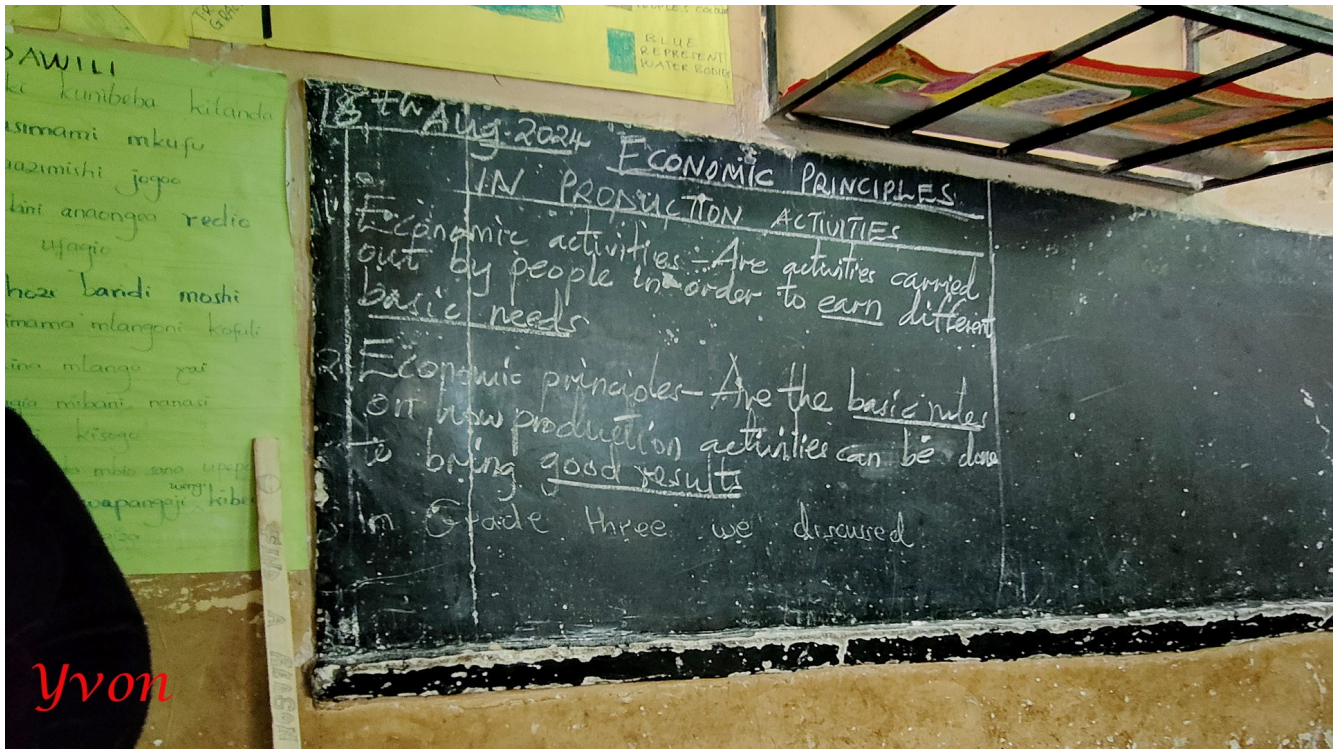 BLUE
REPRESENT
WATER BODIES
AWILI
ki kunibeba kitanda
simami mkufu
azimishi jogoo
bini anaongea redio
ufagio
hozi baridi moshi
imama mlangoni kofuli
ina mlango yai
mibani nanasi
kisogo
mbio sana upepo
wengi
wapangaji kibe
18th Aug. 2024
ECONOMIC PRINCIPLES
IN PRODUCTION ACTIVITIES
1. Economic activities - Are activities carried
out by people in order to earn different
basic needs
2. Economic principles - Are the basic rules
on how production activities can be done
to bring good results
3. In Grade three we discussed
Yvon